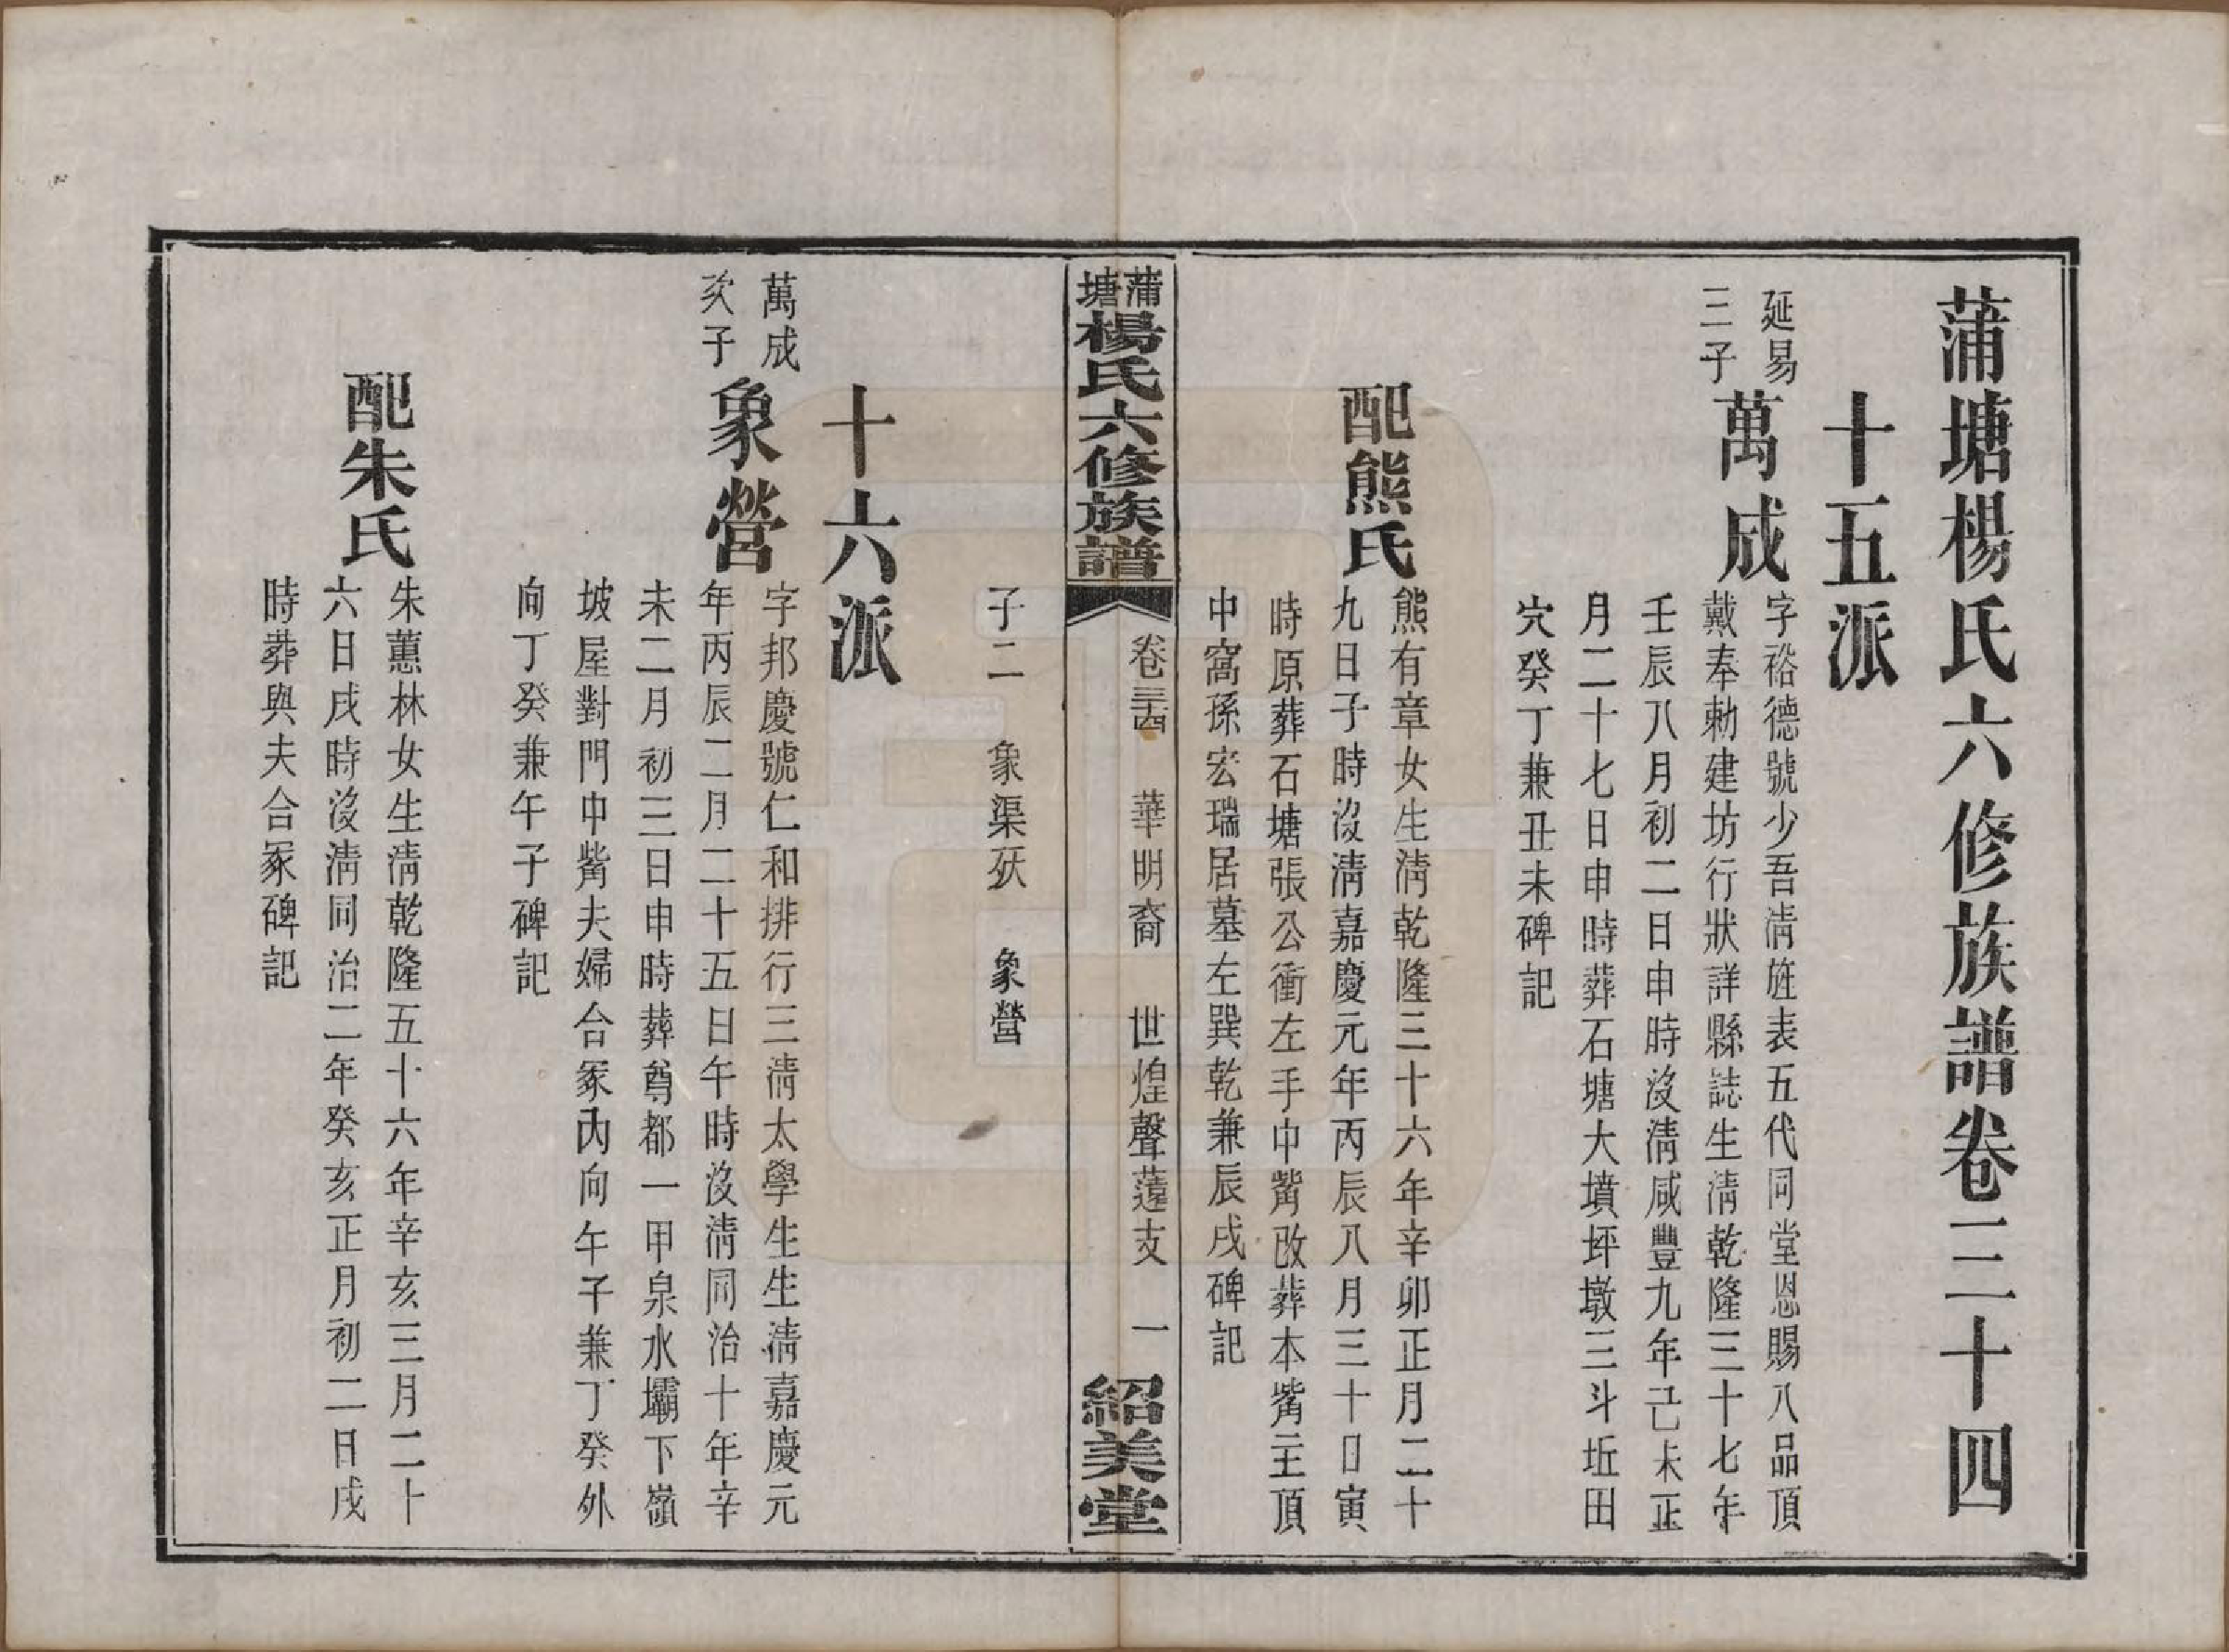 蒲塘楊氏六修族譜卷三十四
十五派
延易三子
萬成
字裕德號少吾淸旌表五代同堂恩賜八品頂
戴奉勅建坊行狀詳縣誌生淸乾隆三十七年
壬辰八月初二日申時沒淸咸豐九年己未正
月二十七日申時葬石塘大墳坪墩三斗坵田
穴癸丁兼丑未碑記
配熊氏
熊有章女生淸乾隆三十六年辛卯正月二十
九日子時沒淸嘉慶元年丙辰八月三十日寅
時原葬石塘張公衝左手中觜改葬本觜主頂
中窩孫宏瑞居墓左巽乾兼辰戌碑記
蒲塘楊氏六修族譜
卷三十四 華明裔 世煌聲薳支 一
紹美堂
子二 象渠殀 象營
十六派
萬成次子
象營
字邦慶號仁和排行三淸太學生生淸嘉慶元
年丙辰二月二十五日午時沒淸同治十年辛
未二月初三日申時葬尊都一甲泉水壩下嶺
坡屋對門中觜夫婦合冢內向午子兼丁癸外
向丁癸兼午子碑記
配朱氏
朱蕙林女生淸乾隆五十六年辛亥三月二十
六日戌時沒淸同治二年癸亥正月初二日戌
時葬與夫合冢碑記